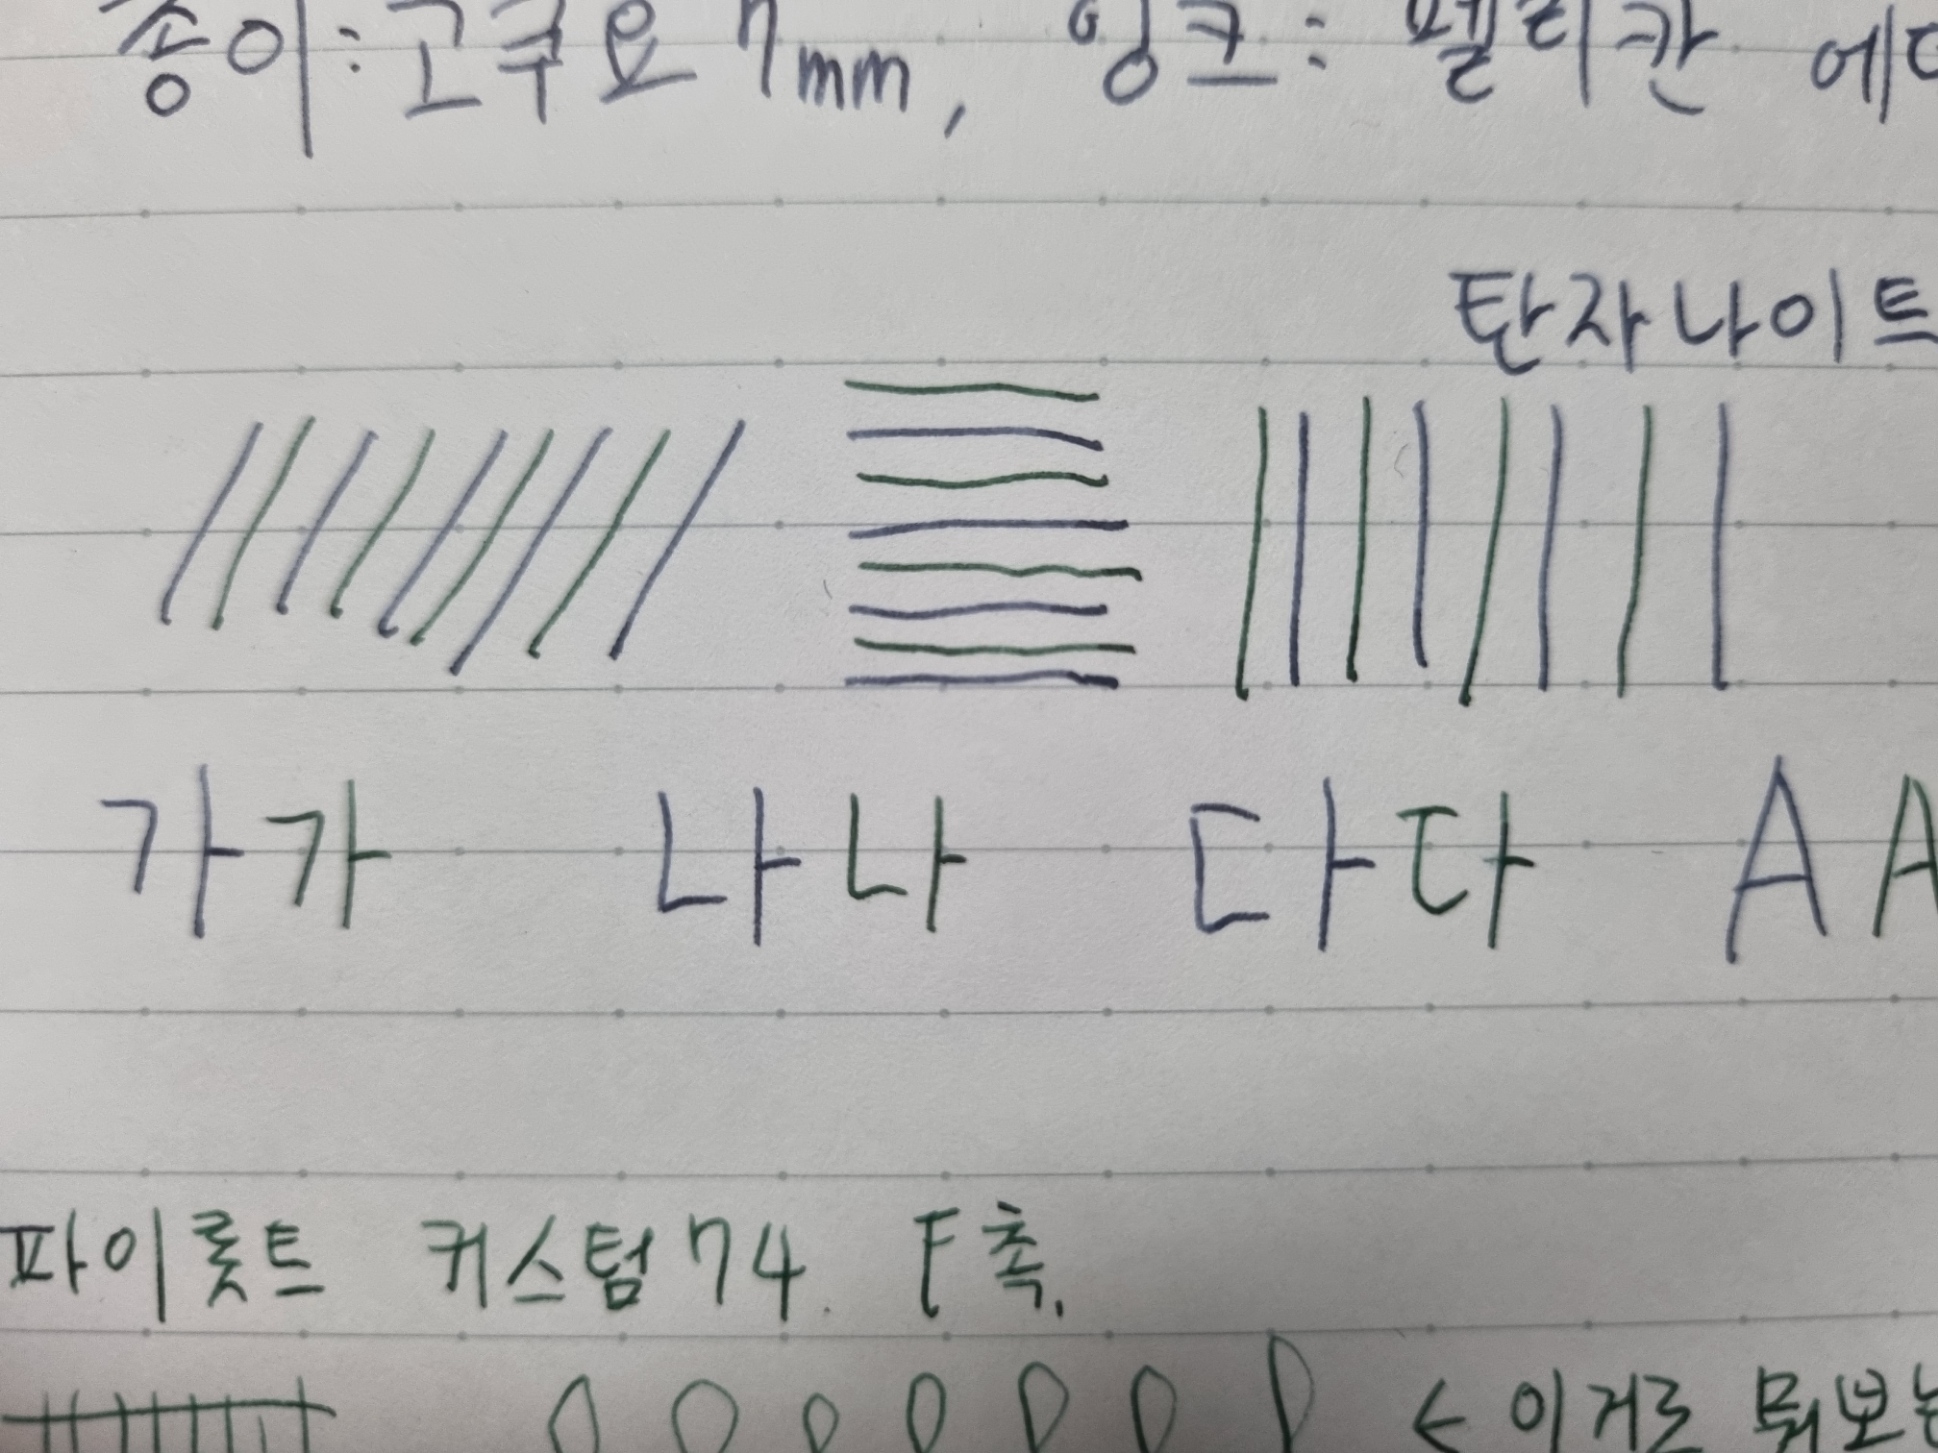 종이:고쿠요 7mm, 잉크: 펠리칸 에디
탄자나이트
가가 나나 다다 AA
파이롯트 커스텀74. F촉.
← 이거로 뭐보는